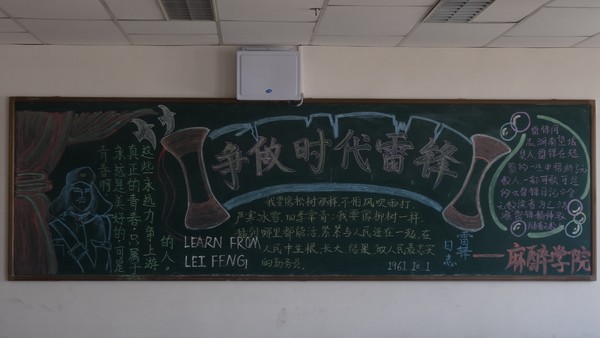 争做时代雷锋
青春啊,
永远是美好的,可是
真正的青春,只属于
这些永远力争上游
的人。
我要像松树那样,不怕风吹雨打,
严寒冰雪,四季常青;我要像柳树一样,
插到哪里都能活,紧紧与人民连在一起,在
人民中生根、长大、结果,做人民最忠实
的勤务员。
1961.10.1
雷锋
日志
LEARN FROM
LEI FENG
——麻醉学院